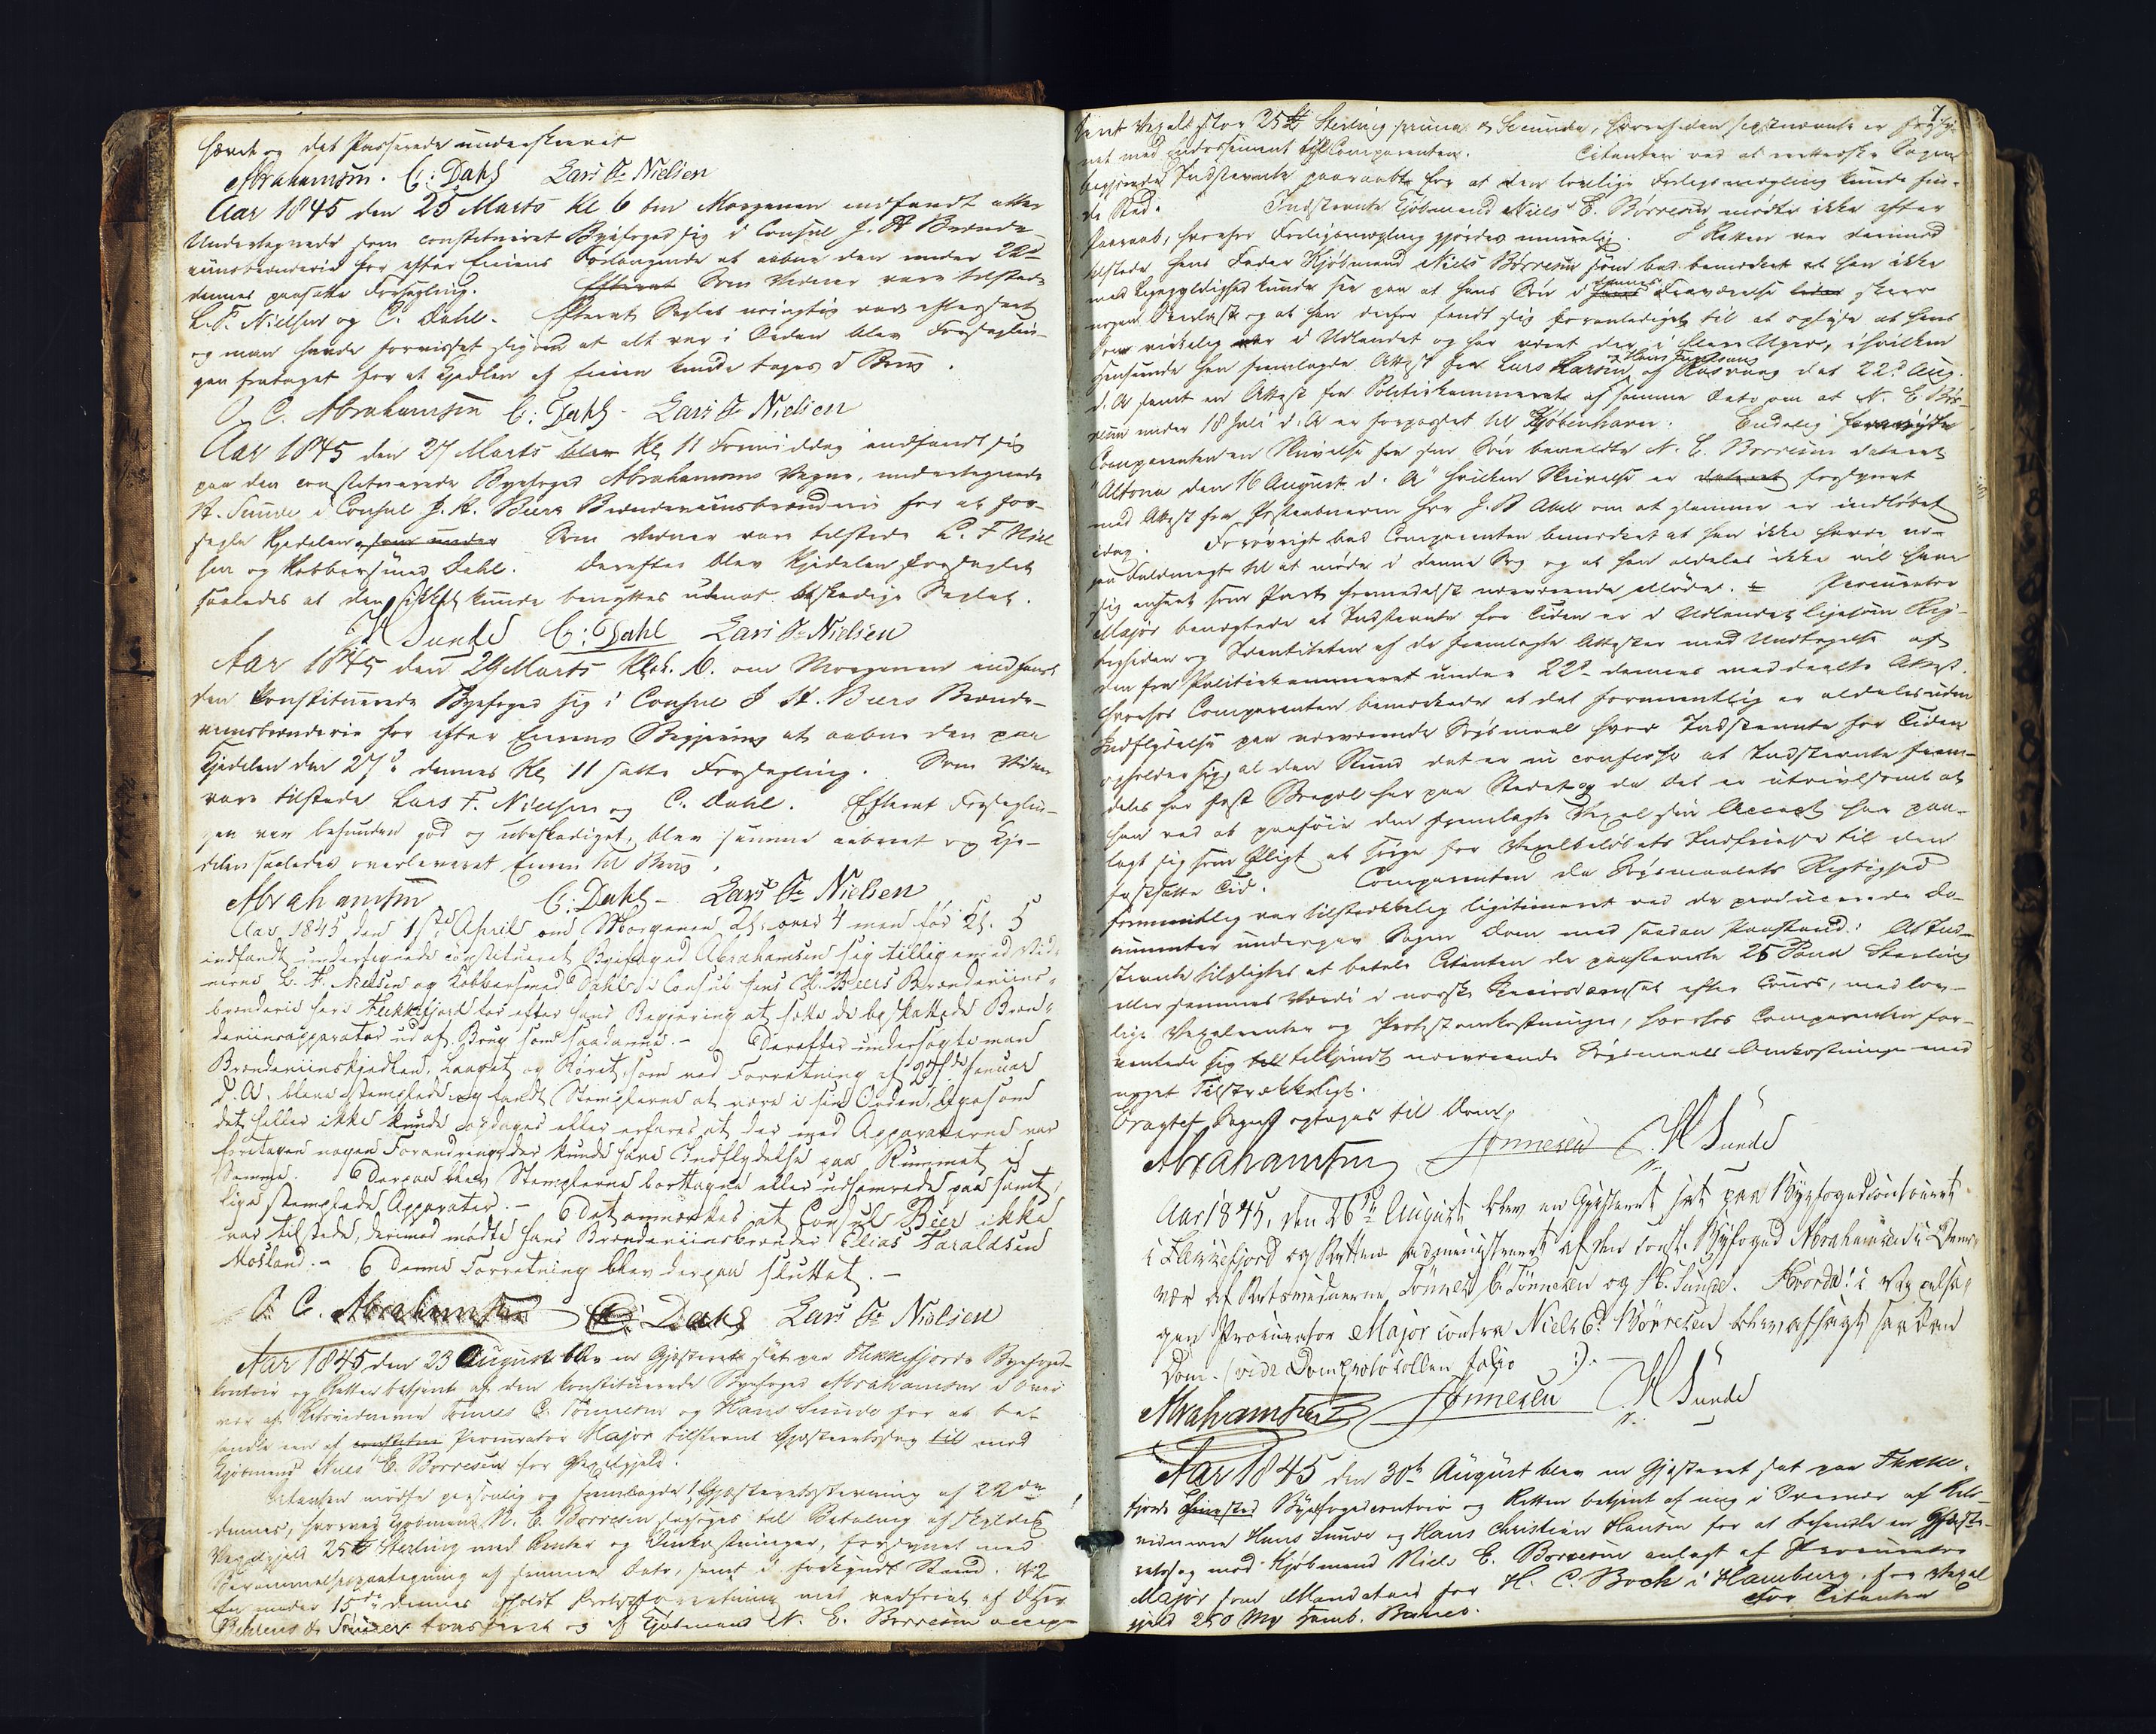 hævet og det Passerede underskrevet
Abrahamsen. C: Dahl Lars Fr Nielsen
Aar 1845 den 25 Marts Kl 6 om Morgenen indfandt atter
Undertegnede som constitueret Byefoged sig i Consul J. H Beers Brænde-
viinsbrænderie for efter Eierens Forlangende at aabne den under 22d
dennes paasatte Forsegling. Som Vidner vare tilstede
L. F. Nielsen og C. Dahl. Efterat Seglet nøiagtig var efterseet
og man havde forvisset sig om at alt var i Orden blev Forseglin-
gen frataget for at Kjedlen af Eieren kunde tages i Brug.
O. C. Abrahamsen C: Dahl - Lars Fr Nielsen
Aar 1845 den 27 Marts blev Kl 11 Formiddag indfandt sig
paa den constituerede Byefoged Abrahamsens Vegne, undertegnede
H. Sunde i Consul J. H. Beers Brændeviinsbrænderie for at for-
segle Kjedelen, som under Som Vidner vare tilstede L. F Niel
sen og Kobbersmed Dahl. Derefter blev Kjedelen forseglet
saaledes at den ikke kunde benyttes uden at beskadige Seglet.
H Sunde C: Dahl Lars Fr Nielsen
Aar 1845 den 29 Marts Klok. 6. om Morgenen indfandt
den Constituerede Byefoged sig i Consul J H. Beers Brænde-
viinsbrænderie for efter Eierens Begjæring at aabne den paa
Kjedelen den 27d dennes Kl 11 satte Forsegling. Som Vidner
vare tilstede Lars F. Nielsen og C. Dahl. Efterat Forseglin-
gen var befunden god og ubeskadiget, blev samme aabnet og Kje-
delen saaledes overleveret Eieren til Brug.
Abrahamsen C: Dahl - Lars Fr Nielsen
Aar 1845 den 1ste April om Morgenen Kl. over 4 men før Kl. 5
indfandt undertegnede constitueret Byefoged Abrahamsen sig tilligemed Vid-
nerne L. F. Nielsen og Kobbersmed Dahl i Consul Jens H. Beers Brændeviins-
brænderie her i Flekkefjord for efter hans Begjæring at sætte de beskattede Bræn-
deviinsapparater ud af Brug som saadanne. - Derefter undersøgte man
Brændeviinskjedlen, Laaget og Røret, som ved Forretning af 29de Januar
d. A. bleve stemplede og fandt Stemplerne at være i sin Orden, ligesom
det heller ikke kunde opdages eller erfares at der med Apparaterne var
foretagen nogen Forandring, der kunde have Indflydelse paa Rummet af
Samme. Derpaa blev Stemplerne borttagne eller udhamrede paa samt-
lige stemplede Apparater. - Det anmærkes at Consul Beer ikke
var tilstede, derimod mødte hans Brændeviinsbrænder Elias Taraldsen
Mosland. - Denne Forretning blev derpaa sluttet. -
O. C. Abrahamsen C: Dahl Lars Fr Nielsen
Aar 1845 den 23 August blev en Gjæsteret sat paa Flekkefjords Byefoged-
contoir og Retten betjent af den Constituerede Byefoged Abrahamsen i Over-
vær af Retsvidnerne Tønnes C. Tønnesen og Hans Sunde for at be-
handle en af constitue Procurator Major tilstevnt Gjæsteretssag til mod
Kjøbmand Niels E. Børresen for Vexelgjeld.
Citanten mødte personlig og fremlagde 1, Gjæsteretsstevning af 22de
dennes, hvorved Kjøbmand N. E. Børresen søges til Betaling af skyldig
Vexelgjeld 25 £ Sterling med Renter og Omkostninger, forsynet med
Berammelsespaategning af samme Dato, samt i forkyndt Stand. 2
En under 15de dennes afholdt Protestforretning med vedheftet af
Behrens & Sønner trasseret og af Kjøbmand N. E. Børresen accep-
7
teret Vexel stor 25 £ Sterling prima & Secunda, hvoraf den sidstnævnte er forsy-
net med Endossement til Comparenten. Citanten ved at iretteføre Sagen
begjærede Indstevnte paaraabt for at den lovlige Forligsmægling kunde fin-
de Sted. Indstevnte Kjøbmand Niels E. Børresen mødte ikke efter
Paaraab, hvorfor Forligsmægling gjordes umuelig. I Retten var derimod
tilstede hans Fader Kjøbmand Niels Børresen som bad bemærket at han ikke
med Ligegyldighed kunde see paa at hans Søn i hans dennes Fraværelse skeer
nogen Overlast og at han derfor fandt sig foranlediget til at oplyse at hans
Søn virkelig var i Udlandet og har været der i flere Uger, i hvilken
Henseende han fremlagde Attest fra Lars Larsen & Hans af Rasvaag dat 22d Aug.
d. A samt en Attest fra Politiekammeret af samme Dato om at N. E Bør-
resen under 18 Juli d. A er forpasset til Kjøbenhavn. Endelig fremviiste
Comparenten en Skrivelse fra sin Søn bemeldte N. E. Børresen dateret
"Altona den 16 August d. A" hvilken Skrivelse er dateret forsynet
med Attest fra Postaabneren Hr J. B Abel om at samme er indløbet
idag. Forøvrigt bad Comparenten bemærket at han ikke havde no-
gen Fuldmagt til at møde i denne Sag og at han aldeles ikke vil have
sig anseet som Part formedelst nærværende Møde. Procurator
Major benægtede at Indstevnte for Tiden er i Udlandet ligesom Rig-
tigheden og Identiteten af de fremlagte Attester med Undtagelse af
den fra Politiekammeret under 22d dennes meddeelte Attest.
Hvorhos Comparenten bemærkede at det formeentlig er aldeles uden
Indflydelse paa nærværende Søgsmaal hvor Indstevnte for Tiden
opholder sig, al den Stund det er in confesso at Indstevnte frem-
deles har fast Bopæl her paa Stedet og da det er utvivlsomt at
han ved at paaføre den fremlagte Vexel sin Accept har paa-
lagt sig som Pligt at sørge for Vexelbeløbets Indfrielse til den
fastsatte Tid. Comparenten da Søgsmaalets Rigtighed
formentlig var tilstrækkelig legitimeret ved de producerede Do-
cumenter undergav Sagen Dom med saadan Paastand: At Ind-
stevnte tilpligtes at betale Citanten de paastevnte 25 Pund Sterling
eller sammes Værdi i norske efter Cours, med lov-
lige Vexelrenter og Protestomkostninger, hvorhos Comparenten for-
ventede sig till tilkjendt nærværende Søgsmaals Omkostninger med
noget Tilstrækkeligt.
Eragtet, Sagen optages til Dom.
Abrahamsen Tønnesen H Sunde
Aar 1845, den 26de August blev en Gjæsteret sat paa Byefogedcontoiret
i Flekkefjord og Retten administreret af den const. Byfoged Abrahamsen i Over-
vær af Retsvidnerne Tønnes C. Tønnesen og H. Sunde. Hvorda: i Vexelsa-
gen Procurator Major contra Niels E. Børresen blev afsagt saadan
Dom. (vide Domsprotocollen folio :). -
Abrahamsen Tønnesen H Sunde
Aar 1845 den 30te August blev en Gjæsteret sat paa Flekke-
fjords Byefogedcontoir og Retten betjent af mig i Overvær af Rets-
vidnerne Hans Sunde og Hans Christian Hansen for at behandle en Gjæste-
retssag mod Kjøbmand Niels E. Børresen anlagt af Procurator
Major som Mandatar for H. C. Bock i Hamburg for Vexel
gjeld 250 Mk Hamb. Banco. For Citanten